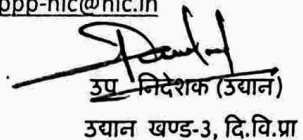 ppp-nic@nic.in
उप निदेशक (उद्यान)
उद्यान खण्ड-3, दि.वि.प्रा